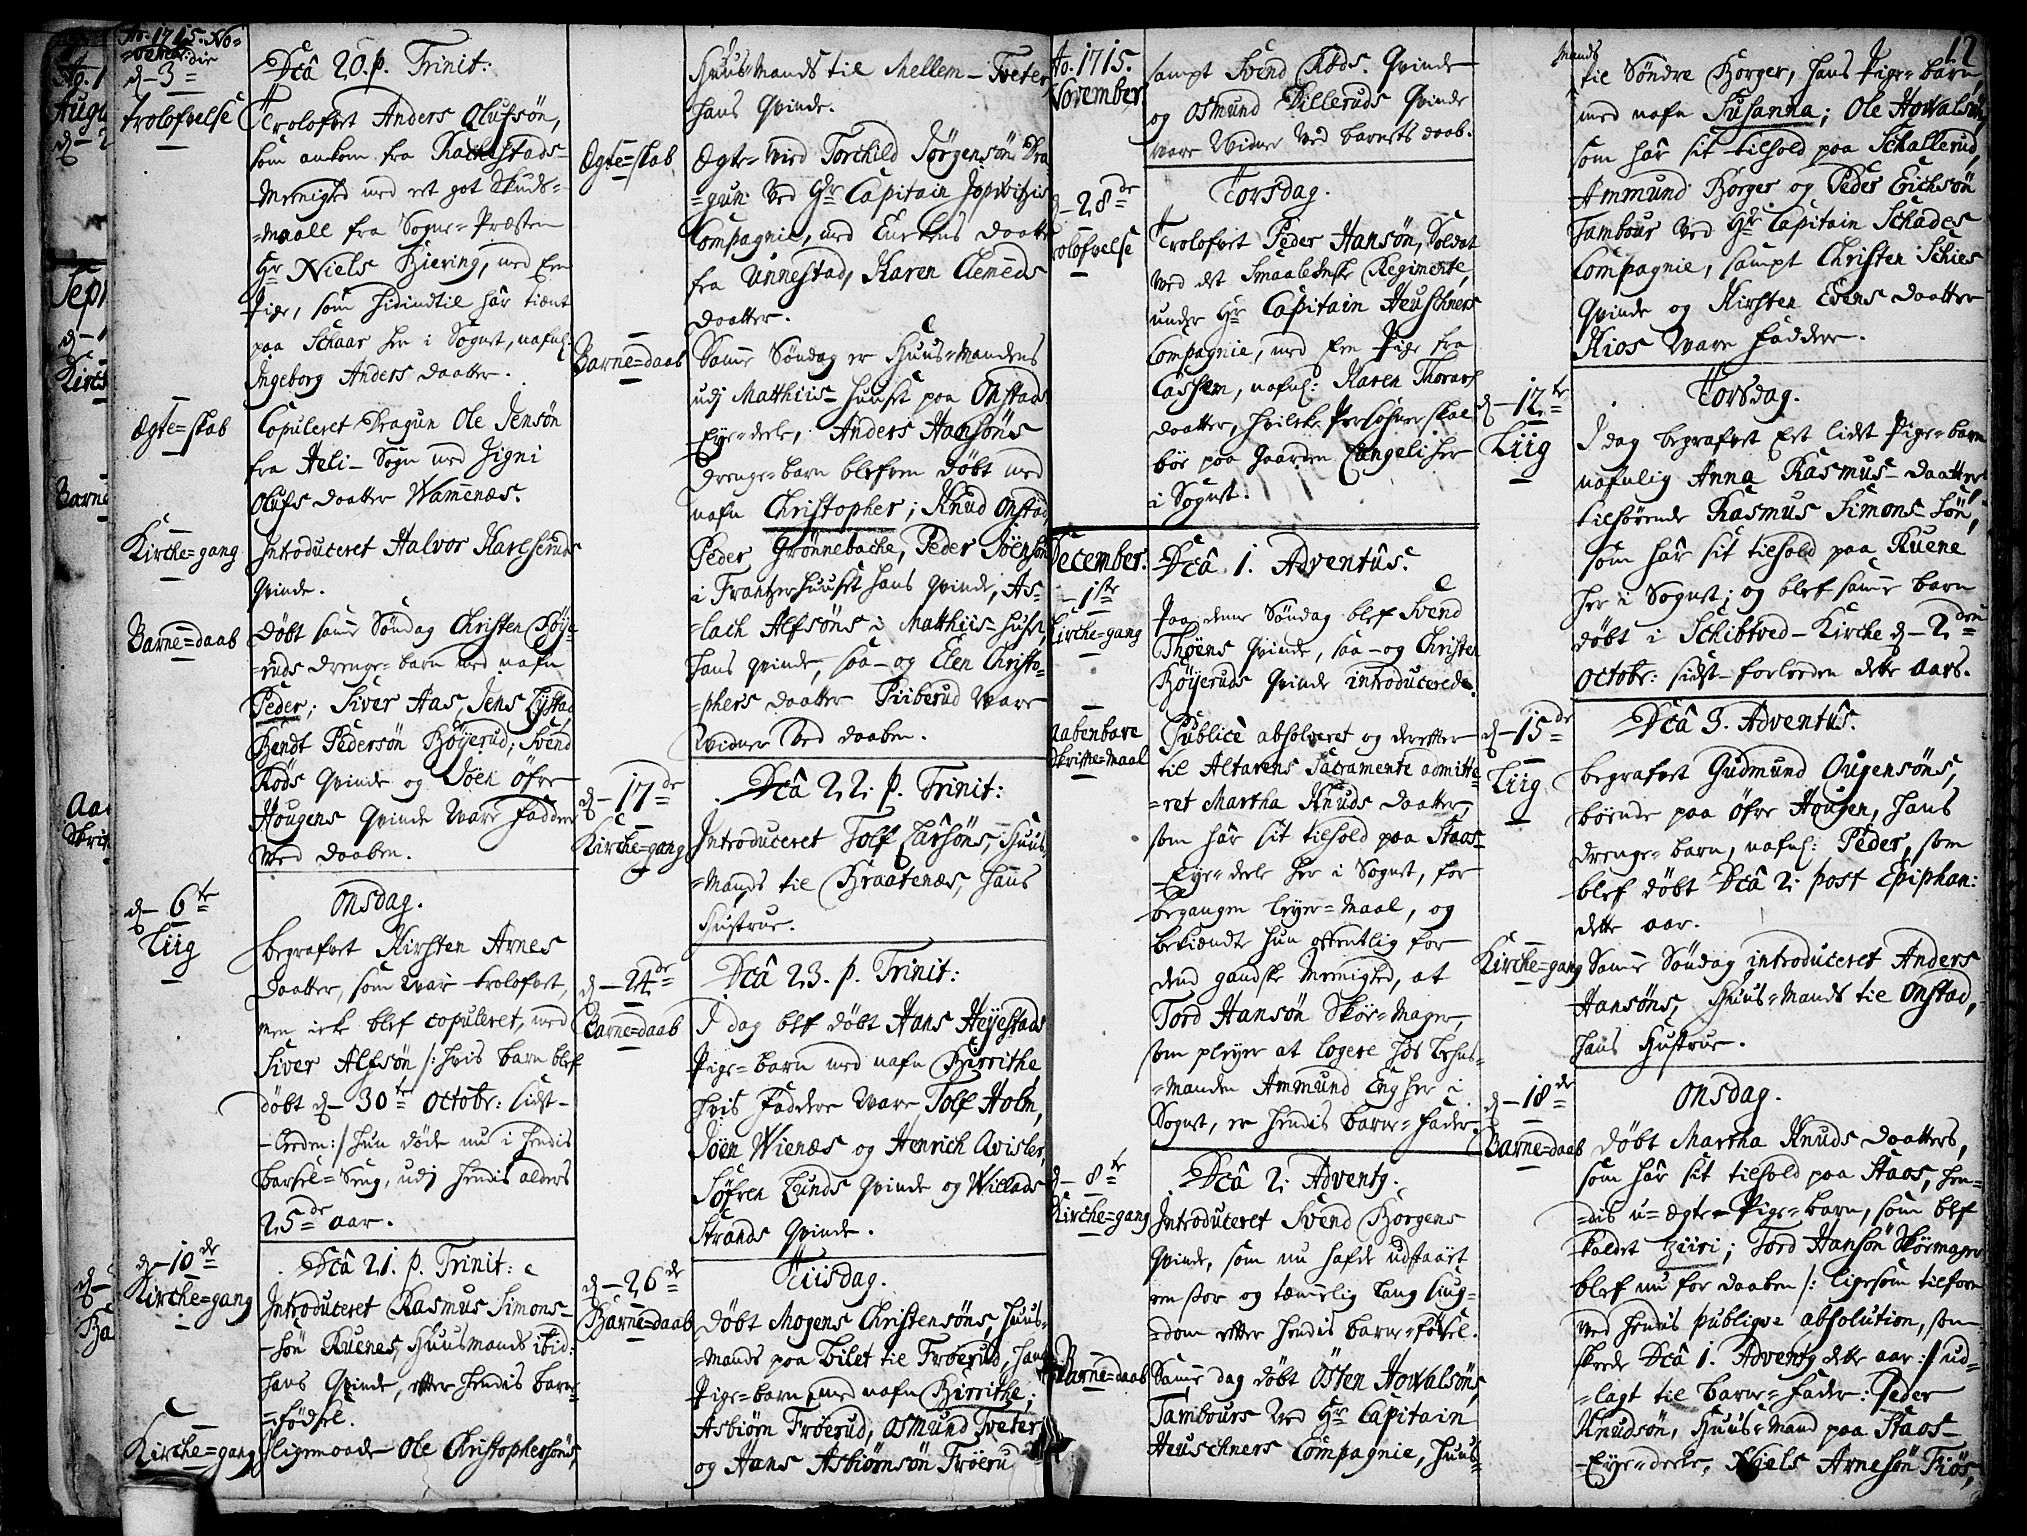 Ao. 1715. No=
=vembr:
d – 3 =
Trolofvelse
Dcâ 20. p. Trinit:
Trolofvet Anders Olufsön,
som ankom fra Rachestads=
Menighed med et got Skuds=
=maall fra Sogne=Præsten
Hr Niels Biering, med Een
Pige, som hidindtil hâr tiænt
paa Schaar her i Sognet, nafnl:
Ingeborg Anders daatter.
Ægte=skab
Copuleret Dragun Ole Jensön
fra Heli-Sogn med Signi
Olufs daatter Wamenæs.
Kirche=gang
Introduceret Halvor Karlseruds
Qvinde.
Barne=daab
Döbt samē Söndag Christen Böye=
=ruds drenge=barn med nafn
Peder; Siver Aas, Jens Lystad,
Bendt Pedersön Böyerud; Svend
Röds Qvinde og Jöen öfre
Hougens Qvinde ware faddere
wed daaben.
d – 6te
Liig
Onsdag.
begrafvet Kirsten Arnes
daatter, som wâr trolofvet,
men icke blef copuleret, med
Siver Alfsön /: hvis barn blef
döbt d – 30te Octobr: sidst-
-leeden:/ hun döde nu i hendis
barsel=Seng, udj hendis alders
25de aar.
d – 10de
Kirche=gang
Dcâ 21. p. Trinit:
Introduceret Rasmus Simons-
-sön Ruenes, Huusmands ibid:
hans Qvinde, efter hendis barne=
=födsel.
Kirche=gang
Ligemaade Ole Christophersöns,
Huus=Mands til Mellem-Tveter
hans Qvinde.
Ægte=skab
Ægte-wied Torchild Jörgensön Dra
=gun wed Hr Capitain
Compagnie, med Enckens daatter
fra Unnestad, Karen Clemēds
daatter.
Barne=daab
Samē Söndag er Huus=Mandens
udj Matthiis-huuset paa Onstad
Eye=deele, Anders Hansöns
drenge=barn blefven döbt med
nafn Christopher; Knud Onstad
Peder Grönnebache, Peder Jöensön
i Frantzerhuuset hans qvinde, As=
=lach Alfsöns i Matthiis-huset,
hans qvinde, saa-og Elen Christo=
=phers daatter Piiberud ware
widner wed daaben.
d – 17de
Kirche=gang
Dcâ 22. p. Trinit:
Introduceret Tolf Larsöns, Huus=
=Mands til Braatenæs, hans
Hustrue.
d – 24de
Barne=daab
Dcâ 23. p. Trinit:
I dag blef döbt Hans Heyestads
Pige=barn med nafn Birrithe
hvis faddere ware Tolf Holm,
Jöen Wienæs og Henrich Avisler,
Söfren Lunds qvinde og Willads
Strands qvinde.
d – 26de
Barne=daab
Tiisdag.
Döbt Mogens Christensöns, huus=
=Mands paa Bilet til Fröerud, hans
Pige=barn med nafn Birrithe;
Asbiörn Fröerud, Osmund Tveter,
og Hans Asbiörnsön Fröerud
Ao. 1715.
November
sampt Svend Röds Qvinde
og Osmund Pilleruds Qvinde
ware widner wed barnets daab.
d – 28de
Trolofvelse
Torsdag.
Trolofvet Peder Hansön, Soldat
wed det Smaalehnske Regimente,
under Hr Capitain Heuschners
Compagnie, med Een Pige fra
Cashem, nafnl: Karen Thorars
daatter, hvilcke Persohner skal
bôe paa Gaarden Engeli her
i Sognet.
December.
– 1ste
Kirche=gang
Dcâ 1. Adventûs.
Paa denne Söndag blef Svend
Thöens Qvinde, saa-og Christen
Böyeruds Qvinde introducerede.
Aabenbare
Skrifte=maal
Publicè absolveret og derefter
til Altarens Sacramente admitte=
=ret Martha Knuds daatter
som hâr sit tilhold paa Staas-
-Eye=deele her i Sognet, for
begangen Leyer=Maal, og
bekiændte hun offentlig for
dend gandske Menighed, at
Tord Hansön Skôe-Mager,
som pleyer at logere hôs Lehns=
=Manden Ammund Eng her i
Sognet, er hendis barne=fader.
d – 8te
Kirche=gang
Dcâ 2. Adventg.
Introduceret Svend Borgens
Qvinde, som nu hafde udstaaet
en stor og temmelig lang siug=
=dom efter hendis barne=födsel.
Barne=daab
Samē dag döbt Östen Howalsöns,
Tambours wed Hr Capitain
Heuschners Compagnie, huus=
12
mands
til Söndre Borger, hans Pige=barn,
med nafn Susanna; Ole Howalsön,
som hâr sit tilhold paa Schallerud,
Ammund Borger og Peder Erichsön
Tambour wed Hr Capitain Schades
Compagnie, sampt Christen Schies
Qvinde og Kirsten Evens daatter
Kios ware faddere.
d – 12te
Liig
Torsdag.
I dag begrafvet Eet lidet Pige=barn
nafnlig Anna Rasmus-daatter
tilhörende Rasmus Simons-Sön,
som hâr sit tilhold paa Ruene
her i Sognet; og blef samē barn
döbt i Schibtved-Kirche d – 2den
Octobr: sidst-forleeden dette aars.
d – 15de
Liig
Dcâ 3. Adventûs.
begrafvet Gudmund Ougensöns,
bôende paa öfre Hougen, hans
drenge=barn, nafnl: Peder, som
blef döbt Dcâ 2. post Epiphan:
dette aar.
Kirche=gang
Samē Söndag introduceret Anders
Hansöns, Huus=Mands til Onstad,
hans Hustrue.
d – 18de
Barne=daab
Onsdag.
Döbt Martha Knuds daatters,
som hâr sit tilhold paa Staas, hen=
=dis u=ægte Pige=barn, som blef
kaldet Ziiri; Tord Hansön Skôemager
blef nu for daaben /: ligesom tilforn
wed hendis publiqve absolution, som
skeede Dcâ 1. Adventg dette aar:/ ud=
=lagt til barne=fader. Peder
Knudsön, Huus=Mand paa Staos-
-Eye=deele, Niels Arnesön Fiös,